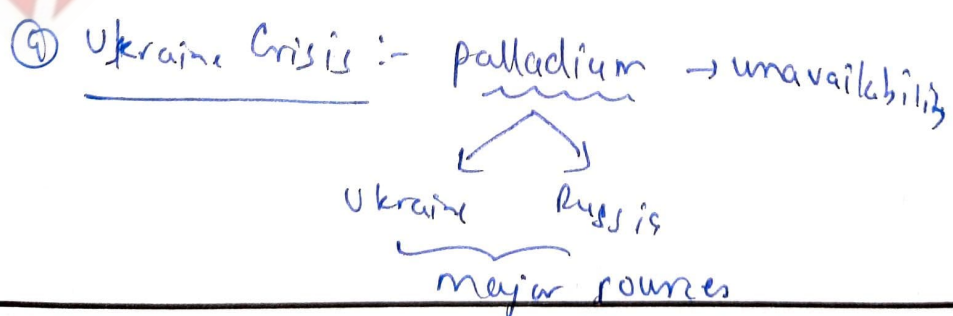 ④ Ukraine Crisis :- palladium → unavailability
Ukraine Russia
major sources